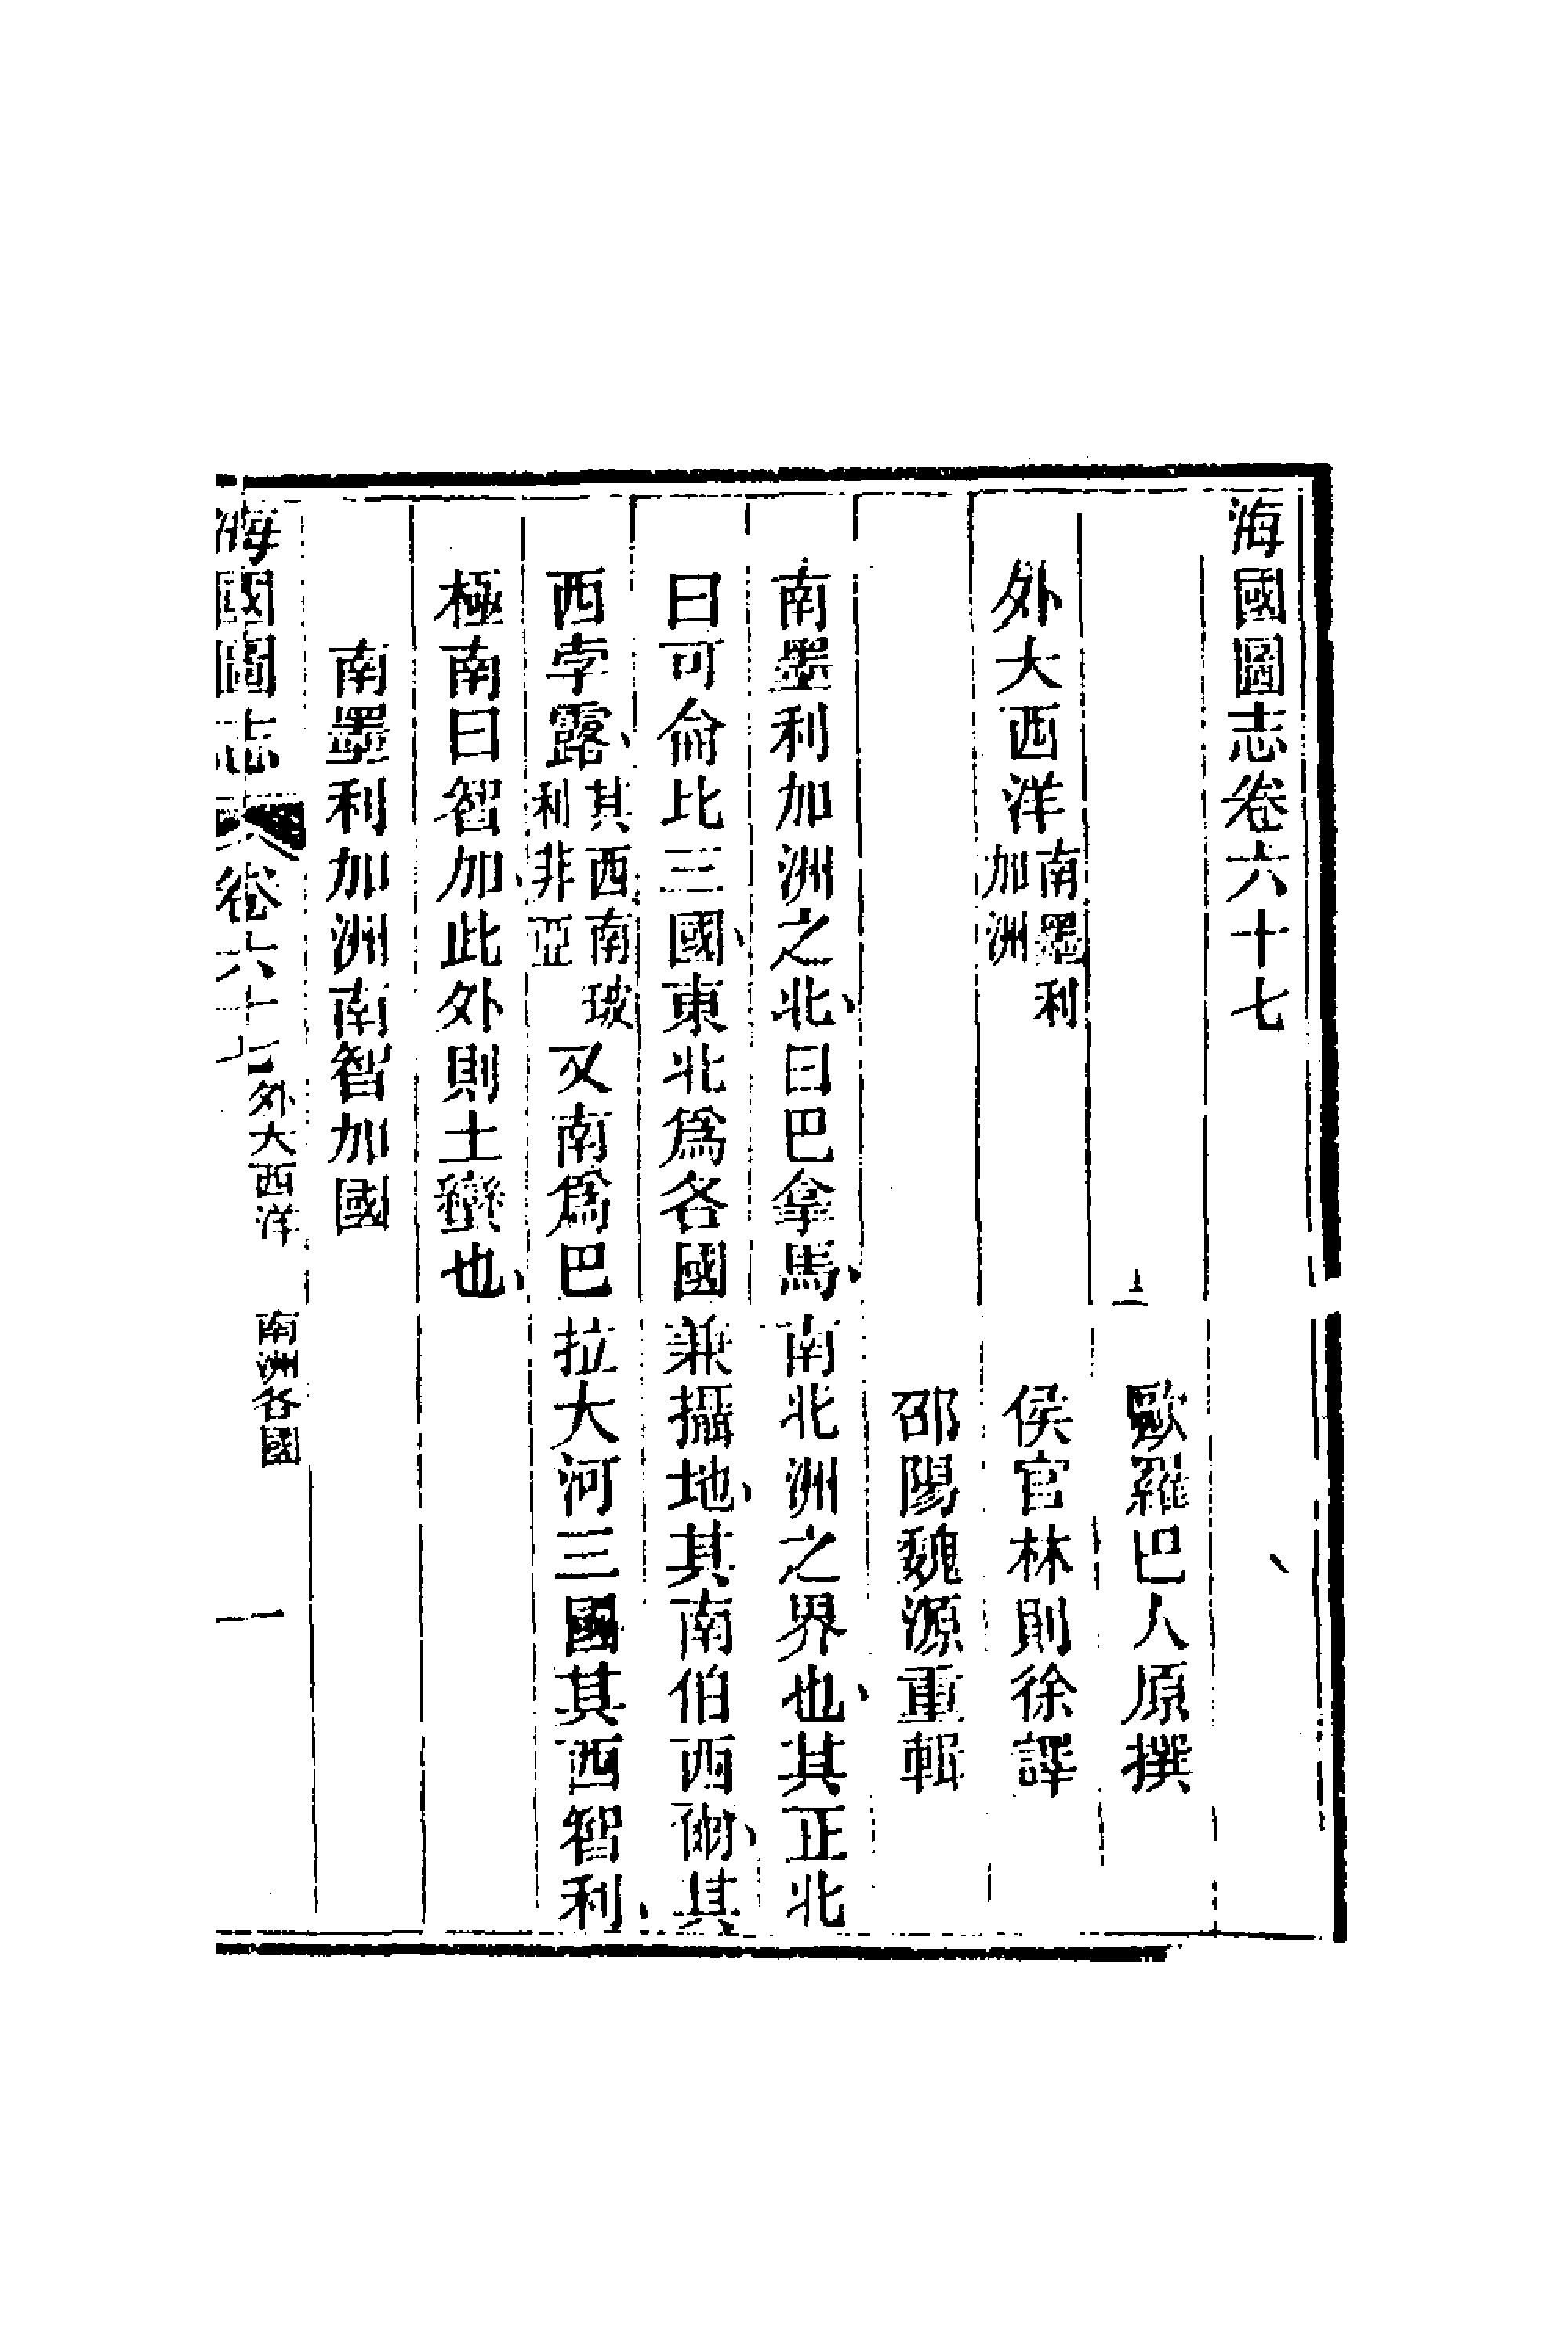 海國圖志卷六十七
歐羅巴人原撰
外大西洋南墨利加洲 侯官林則徐譯
邵陽魏源重輯
南墨利加洲之北、曰巴拿馬、南北洲之界也、其正北
曰可倫比三國、東北爲各國兼攝地、其南伯西爾、其
西孛露、其西南玻利非亞又南爲巴拉大河三國其西智利、
極南曰智加、此外則土蠻也、
南墨利加洲南智加國
海國圖志 卷六十七 外大西洋 南洲各國 一